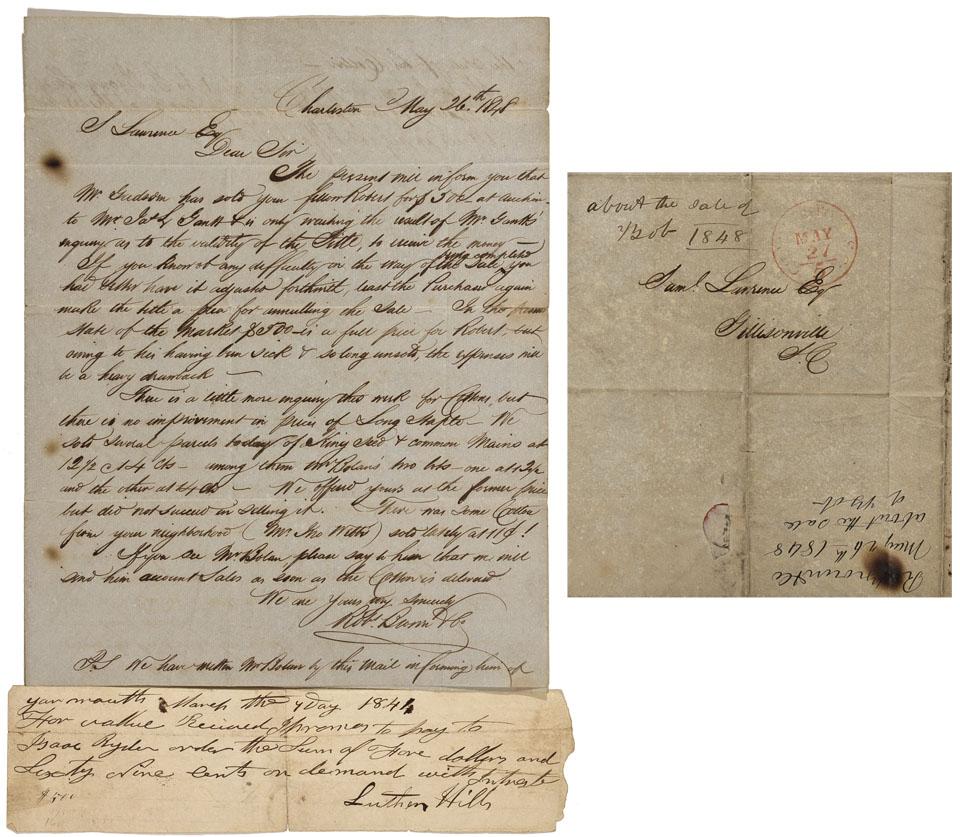 Charleston May 26.th 1848
S Lawrence Esq
Dear Sir
The present will inform you that
Mr Gadsden has sold your fellow Robert for $500 at auction
to Mr Jas L Gantt & is only waiting the result of Mr Gantt's
inquiry as to the validity of the Title, to receive the money —
If you know of any difficulty in the way of the Sale being completed you
had better have it adjusted forthwith, least the Purchaser again
make the title a plea for annulling the Sale — In the present
state of the Market $500 — is a full price for Robert, but
owing to his having been Sick & so long unsold, the expenses will
be a heavy drawback —
There is a little more inquiry this week for Cottons, but
there is no improvement in prices of Long Staple — We
sold several parcels today of & common Mains at
12½ @ 14 Cts — among them Mr Bolan's two lots — one at 13½
and the other at 14 Cts — We offered yours at the former price
but did not succeed in selling it. There was some Cotton
from your neighborhood (Mr. Jno ) sold lately at 11¢!
If you see Mr Bolan please say to him that we will
send him account Sales as soon as the Cotton is delivered
We are Yours very Sincerely
Robt. & Co
P.S We have written Mr Bolan by this Mail informing him of
yarmouth March the 4 Day 1841
For value Received I promes to pay to
Isaac Ryder order the Sum of Five dollars and
Sixty Nine cents on demand with Intrest
Luther Hills
about the sale of
Bob 1848
MAY
27
Saml. Lawrence Esq
Gillisonville
S.C
& Co
May 26th 1848
about the sale
of Bob